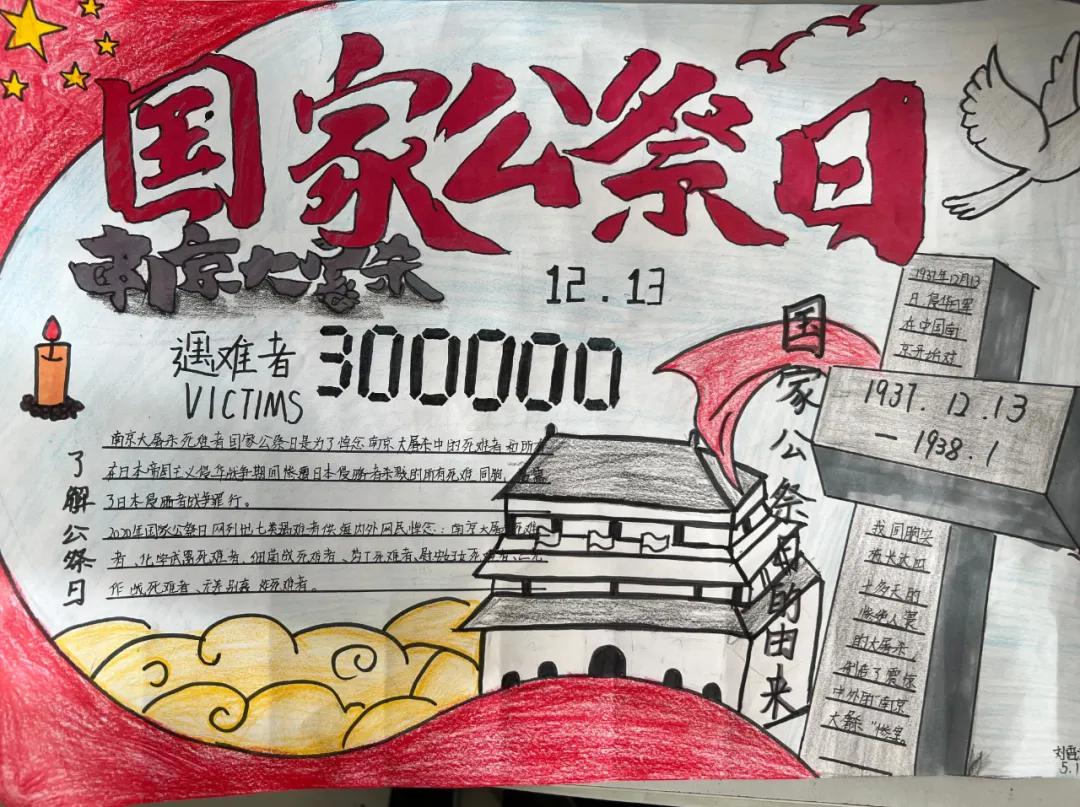 国家公祭日
南京大屠杀
12.13
遇难者
VICTIMS
300000
了解公祭日
南京大屠杀死难者国家公祭日是为了悼念南京大屠杀中的死难者和所有
在日本帝国主义侵华战争期间惨遭日本侵略者杀戮的所有死难同胞
了日本侵略者战争罪行。
2020年国家公祭日网列出七类遇难者供海内外网民悼念：南京大屠
者、化学武器死难者、细菌战死难者、劳工死难者、慰安妇死难者、
作战死难者、无差别轰炸死难者。
国家公祭日的由来
1937年12月13
日,侵华日军
在中国南
京开始对
1937.12.13
—1938.1
我同胞实
施长达四
十多天的
惨绝人寰
的大屠杀
制造了震惊
中外的"南京
大屠杀"惨案。
5.1